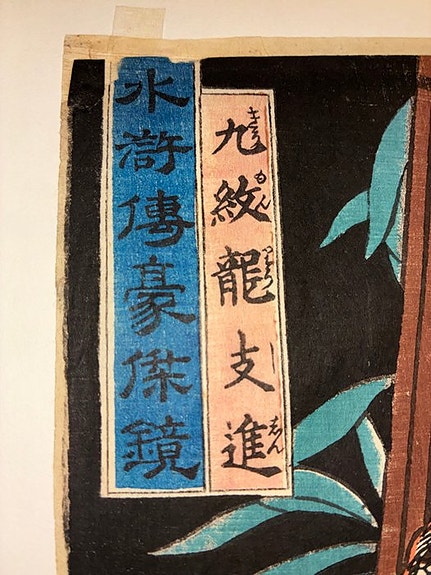 九紋龍支進
きう もん し しん
水滸傳豪傑鏡